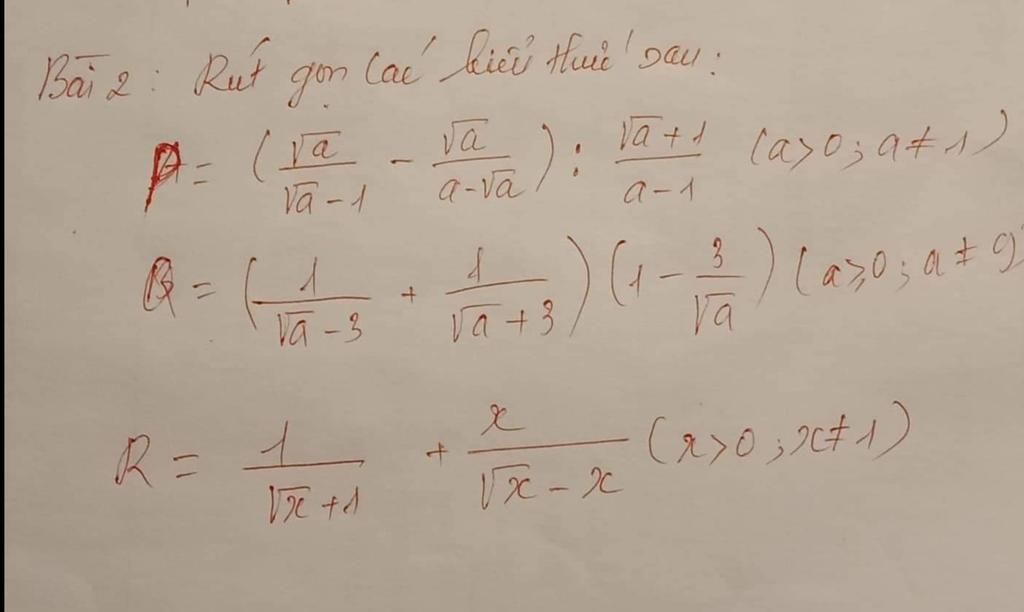 Bài 2: Rút gọn các biểu thức sau:
P = (√a/(√a-1) - √a/(a-√a)) : (√a+1)/(a-1) (a>0; a≠1)
Q = (1/(√a-3) + 1/(√a+3)) (1 - 3/√a) (a≥0; a≠9)
R = 1/(√x+1) + x/(√x-x) (x>0; x≠1)